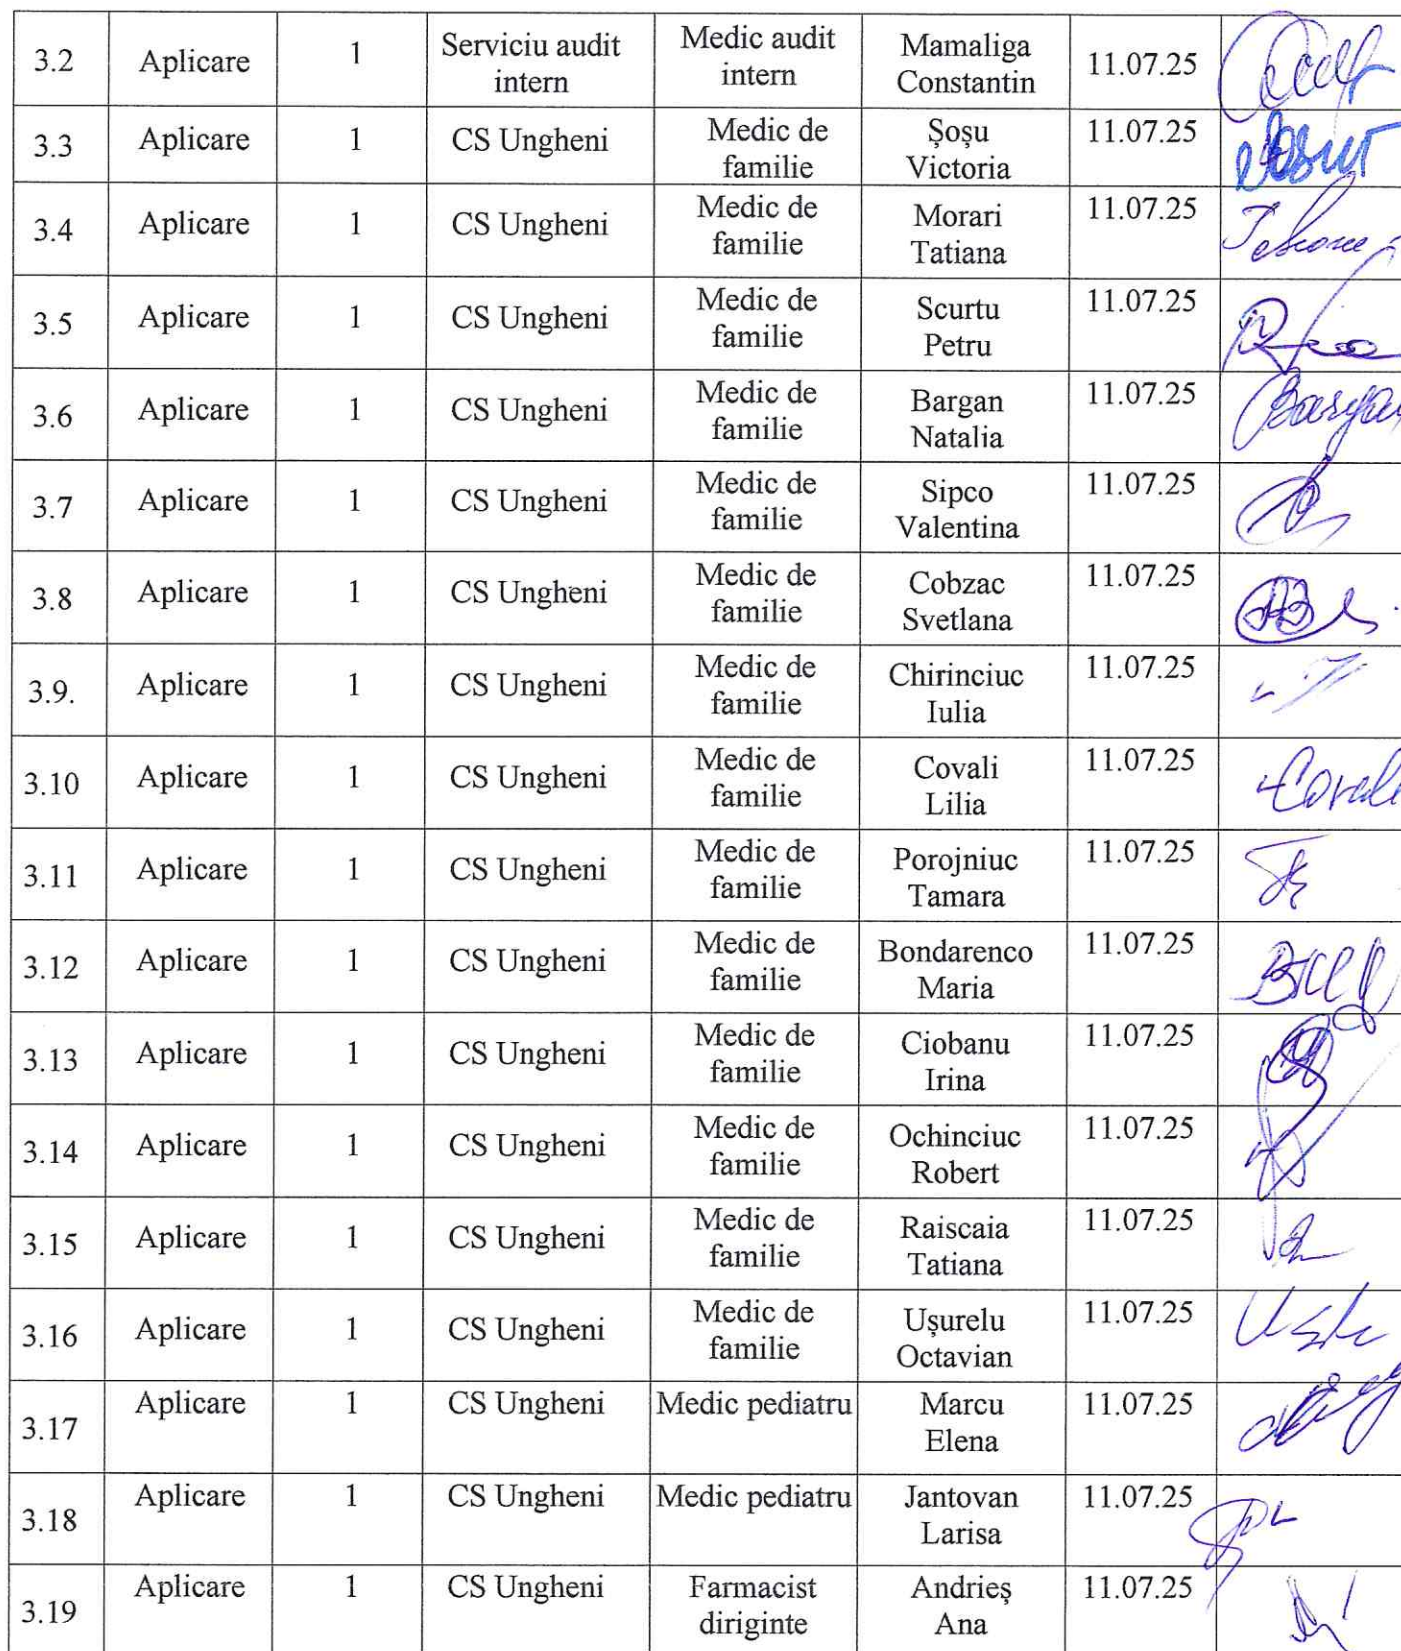 3.2 Aplicare 1 Serviciu audit intern Medic audit intern Mamaliga Constantin 11.07.25
3.3 Aplicare 1 CS Ungheni Medic de familie Șoșu Victoria 11.07.25
3.4 Aplicare 1 CS Ungheni Medic de familie Morari Tatiana 11.07.25
3.5 Aplicare 1 CS Ungheni Medic de familie Scurtu Petru 11.07.25
3.6 Aplicare 1 CS Ungheni Medic de familie Bargan Natalia 11.07.25
3.7 Aplicare 1 CS Ungheni Medic de familie Sipco Valentina 11.07.25
3.8 Aplicare 1 CS Ungheni Medic de familie Cobzac Svetlana 11.07.25
3.9. Aplicare 1 CS Ungheni Medic de familie Chirinciuc Iulia 11.07.25
3.10 Aplicare 1 CS Ungheni Medic de familie Covali Lilia 11.07.25
3.11 Aplicare 1 CS Ungheni Medic de familie Porojniuc Tamara 11.07.25
3.12 Aplicare 1 CS Ungheni Medic de familie Bondarenco Maria 11.07.25
3.13 Aplicare 1 CS Ungheni Medic de familie Ciobanu Irina 11.07.25
3.14 Aplicare 1 CS Ungheni Medic de familie Ochinciuc Robert 11.07.25
3.15 Aplicare 1 CS Ungheni Medic de familie Raiscaia Tatiana 11.07.25
3.16 Aplicare 1 CS Ungheni Medic de familie Ușurelu Octavian 11.07.25
3.17 Aplicare 1 CS Ungheni Medic pediatru Marcu Elena 11.07.25
3.18 Aplicare 1 CS Ungheni Medic pediatru Jantovan Larisa 11.07.25
3.19 Aplicare 1 CS Ungheni Farmacist diriginte Andrieș Ana 11.07.25